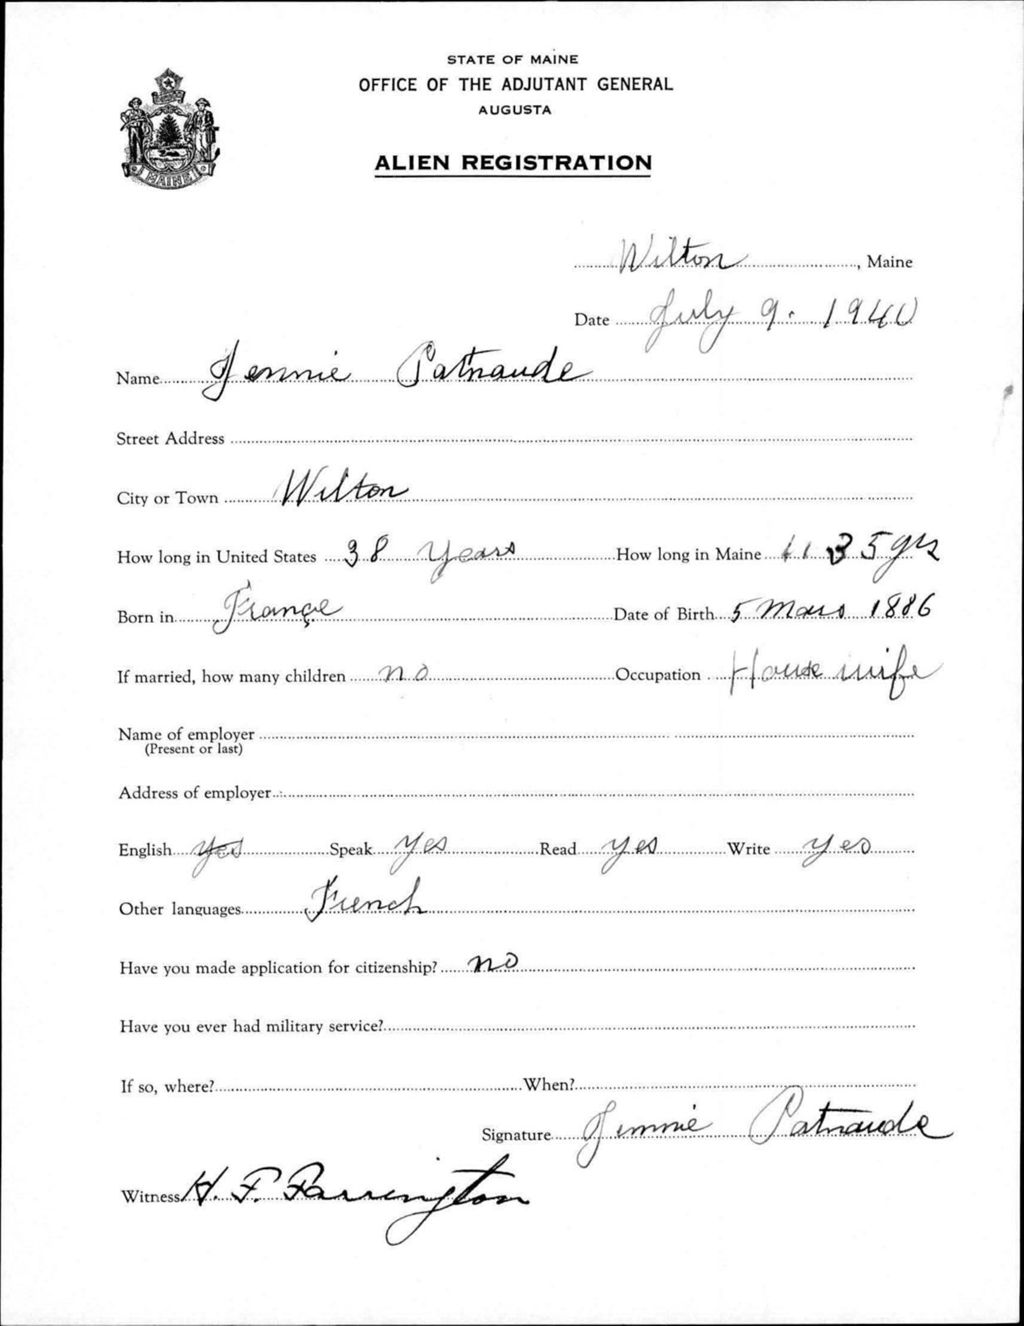 STATE OF MAINE
OFFICE OF THE ADJUTANT GENERAL
AUGUSTA
ALIEN REGISTRATION
MAINE
Wilton, Maine
Date July 9. 1940
Name Jennie Patnaude
Street Address
City or Town Wilton
How long in United States 38 Years How long in Maine 35 yrs
Born in France Date of Birth 5 Mars 1886
If married, how many children no Occupation House wife
Name of employer
(Present or last)
Address of employer
English yes Speak yes Read yes Write yes
Other languages French
Have you made application for citizenship? no
Have you ever had military service?
If so, where? When?
Signature Jennie Patnaude
Witness H. F. Farrington